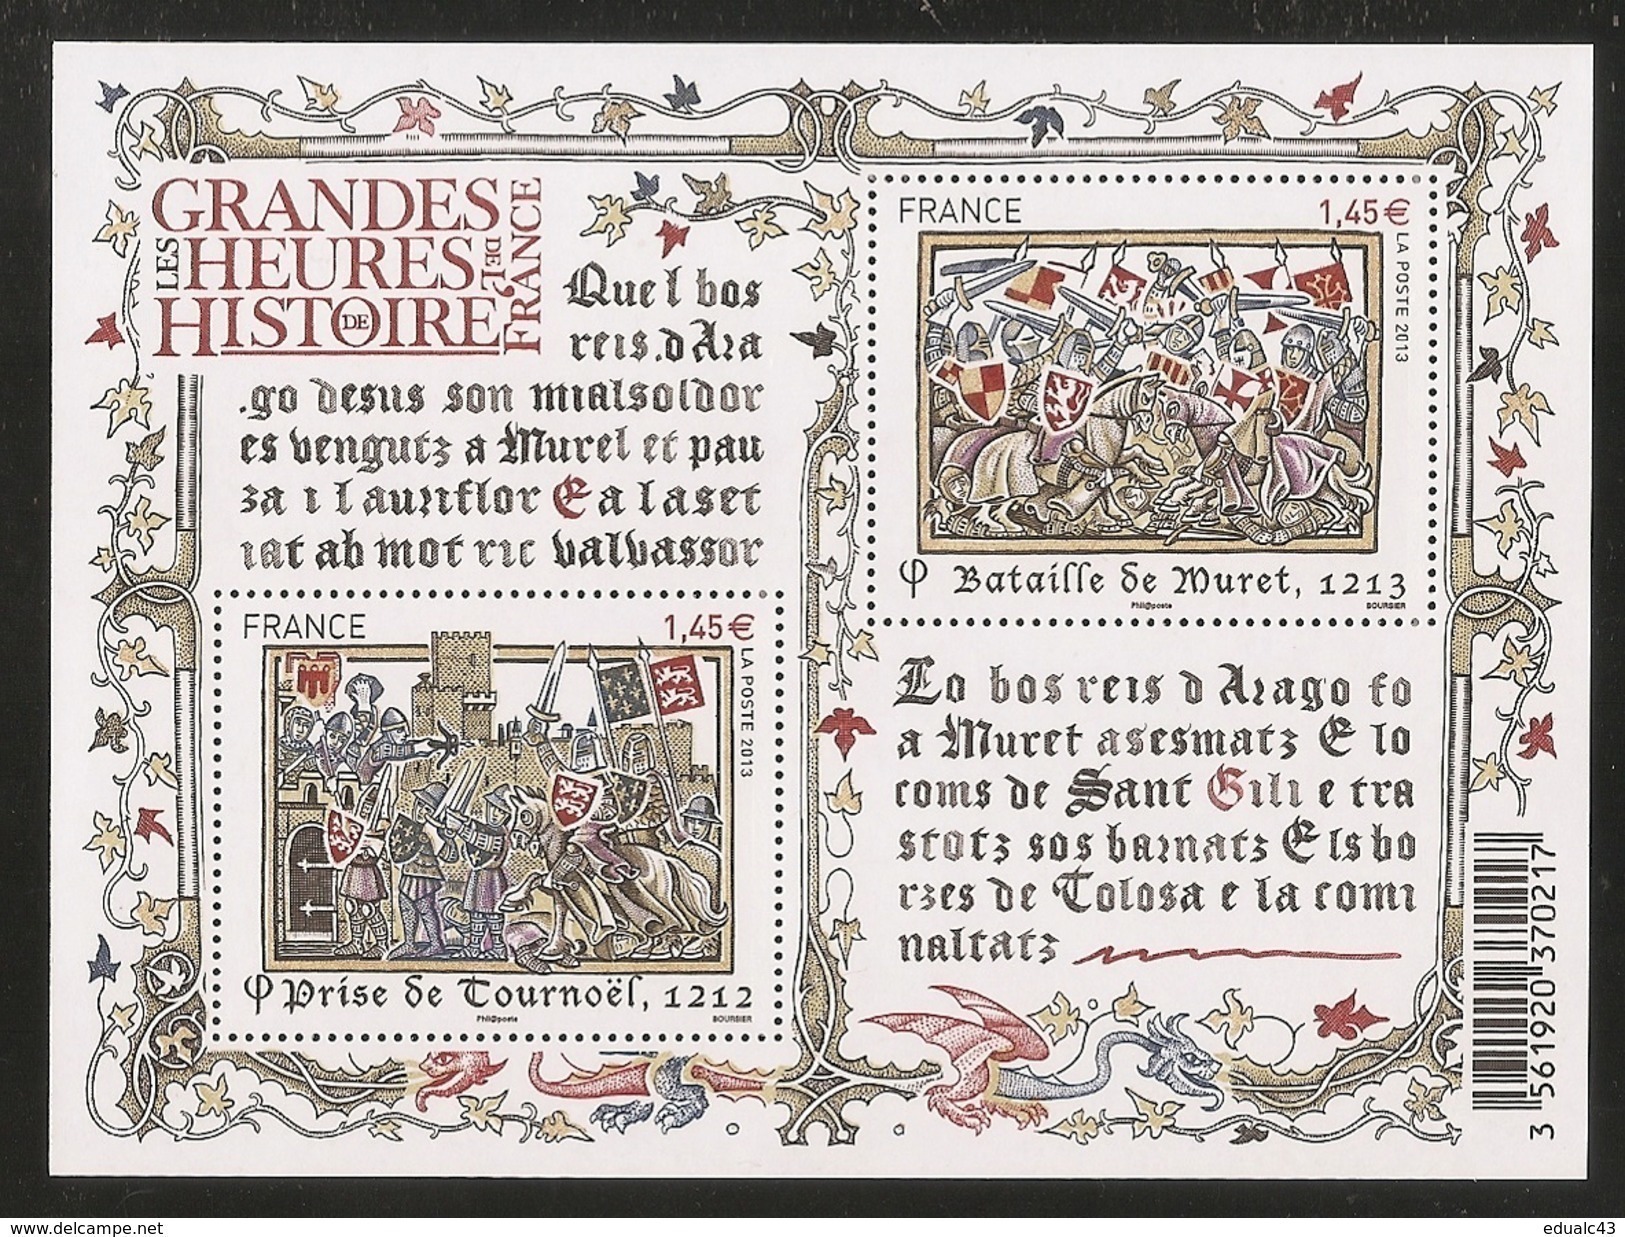 LES
GRANDES
HEURES
DE L'
HISTOIRE
DE
FRANCE
Que l bos
reis.d Ara
.go desus son mialsoldor
es vengutz a Murel et pau
za i l auriflor E a laset
iat ab mot ric valvassor
FRANCE 1,45€
LA POSTE 2013
φ Bataille de Muret, 1213
Phil@poste BOURSIER
FRANCE 1,45€
LA POSTE 2013
φ Prise de Tournoël, 1212
Phil@poste BOURSIER
Lo bos reis d Arago fo
a Muret asesmatz E lo
coms de Sant Gili e tra
stotz sos barnatz Els bo
rzes de Tolosa e la comi
naltatz
3 561920 370217
www.delcampe.net
edualc43